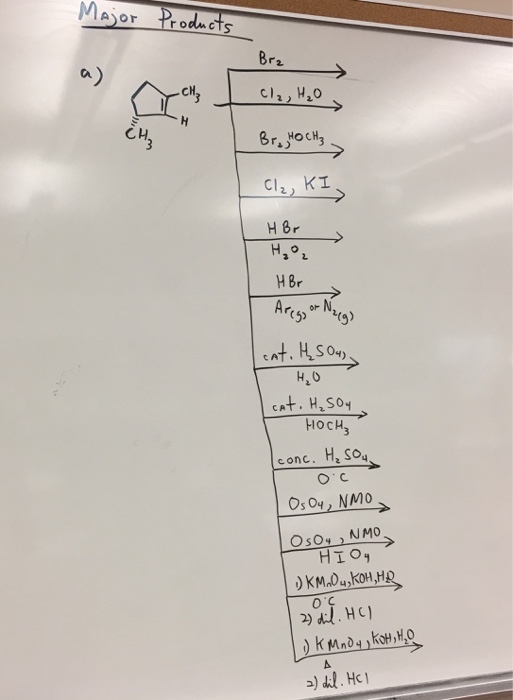 Major Products
a)
CH₃
H
CH₃
Br₂
Cl₂, H₂O
Br₂, HOCH₃
Cl₂, KI
HBr
H₂O₂
HBr
Ar(g) or N₂(g)
cat. H₂SO₄,
H₂O
cat. H₂SO₄
HOCH₃
conc. H₂SO₄
0°C
OsO₄, NMO
OsO₄, NMO
HIO₄
1) KMnO₄, KOH, H₂O
0°C
2) dil. HCl
1) KMnO₄, KOH, H₂O
Δ
2) dil. HCl